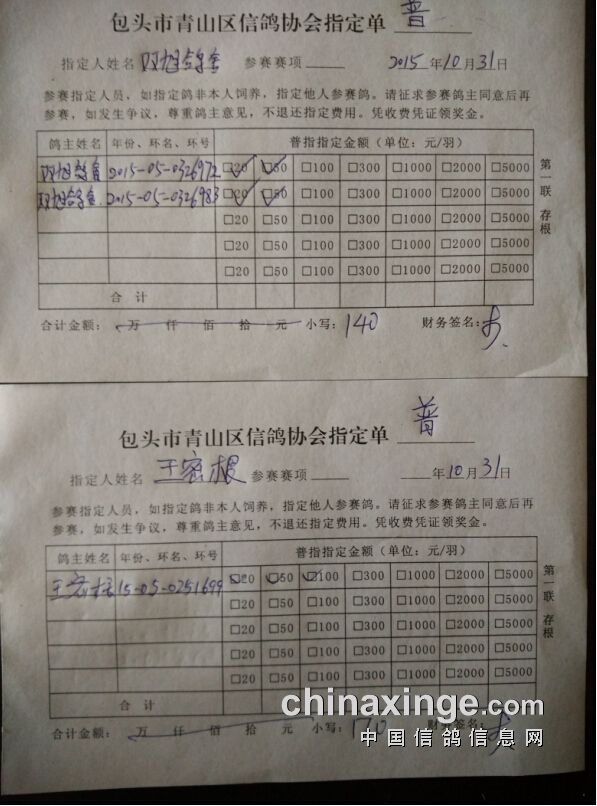 包头市青山区信鸽协会指定单 普
指定人姓名 参赛赛项 2015年10月31日
参赛指定人员，如指定鸽非本人饲养，指定他人参赛鸽。请征求参赛鸽主同意后再
参赛，如发生争议，尊重鸽主意见，不退还指定费用。凭收费凭证领奖金。
鸽主姓名 年份、环名、环号 普指指定金额（单位：元/羽）
2015-05-0326972 □20 □50 □100 □300 □1000 □2000 □5000
2015-05-0326983 □20 □50 □100 □300 □1000 □2000 □5000
□20 □50 □100 □300 □1000 □2000 □5000
□20 □50 □100 □300 □1000 □2000 □5000
□20 □50 □100 □300 □1000 □2000 □5000
合 计
第一联 存根
合计金额： 万 仟 佰 拾 元 小写：140 财务签名：
包头市青山区信鸽协会指定单 普
指定人姓名 王密根 参赛赛项 年10月31日
参赛指定人员，如指定鸽非本人饲养，指定他人参赛鸽。请征求参赛鸽主同意后再
参赛，如发生争议，尊重鸽主意见，不退还指定费用。凭收费凭证领奖金。
鸽主姓名 年份、环名、环号 普指指定金额（单位：元/羽）
王密根 15-05-0251699 □20 □50 □100 □300 □1000 □2000 □5000
□20 □50 □100 □300 □1000 □2000 □5000
□20 □50 □100 □300 □1000 □2000 □5000
□20 □50 □100 □300 □1000 □2000 □5000
□20 □50 □100 □300 □1000 □2000 □5000
合 计
第一联 存根
合计金额： 万 仟 佰 拾 元 小写：170 财务签名：
chinaxinge.com
中国信鸽信息网